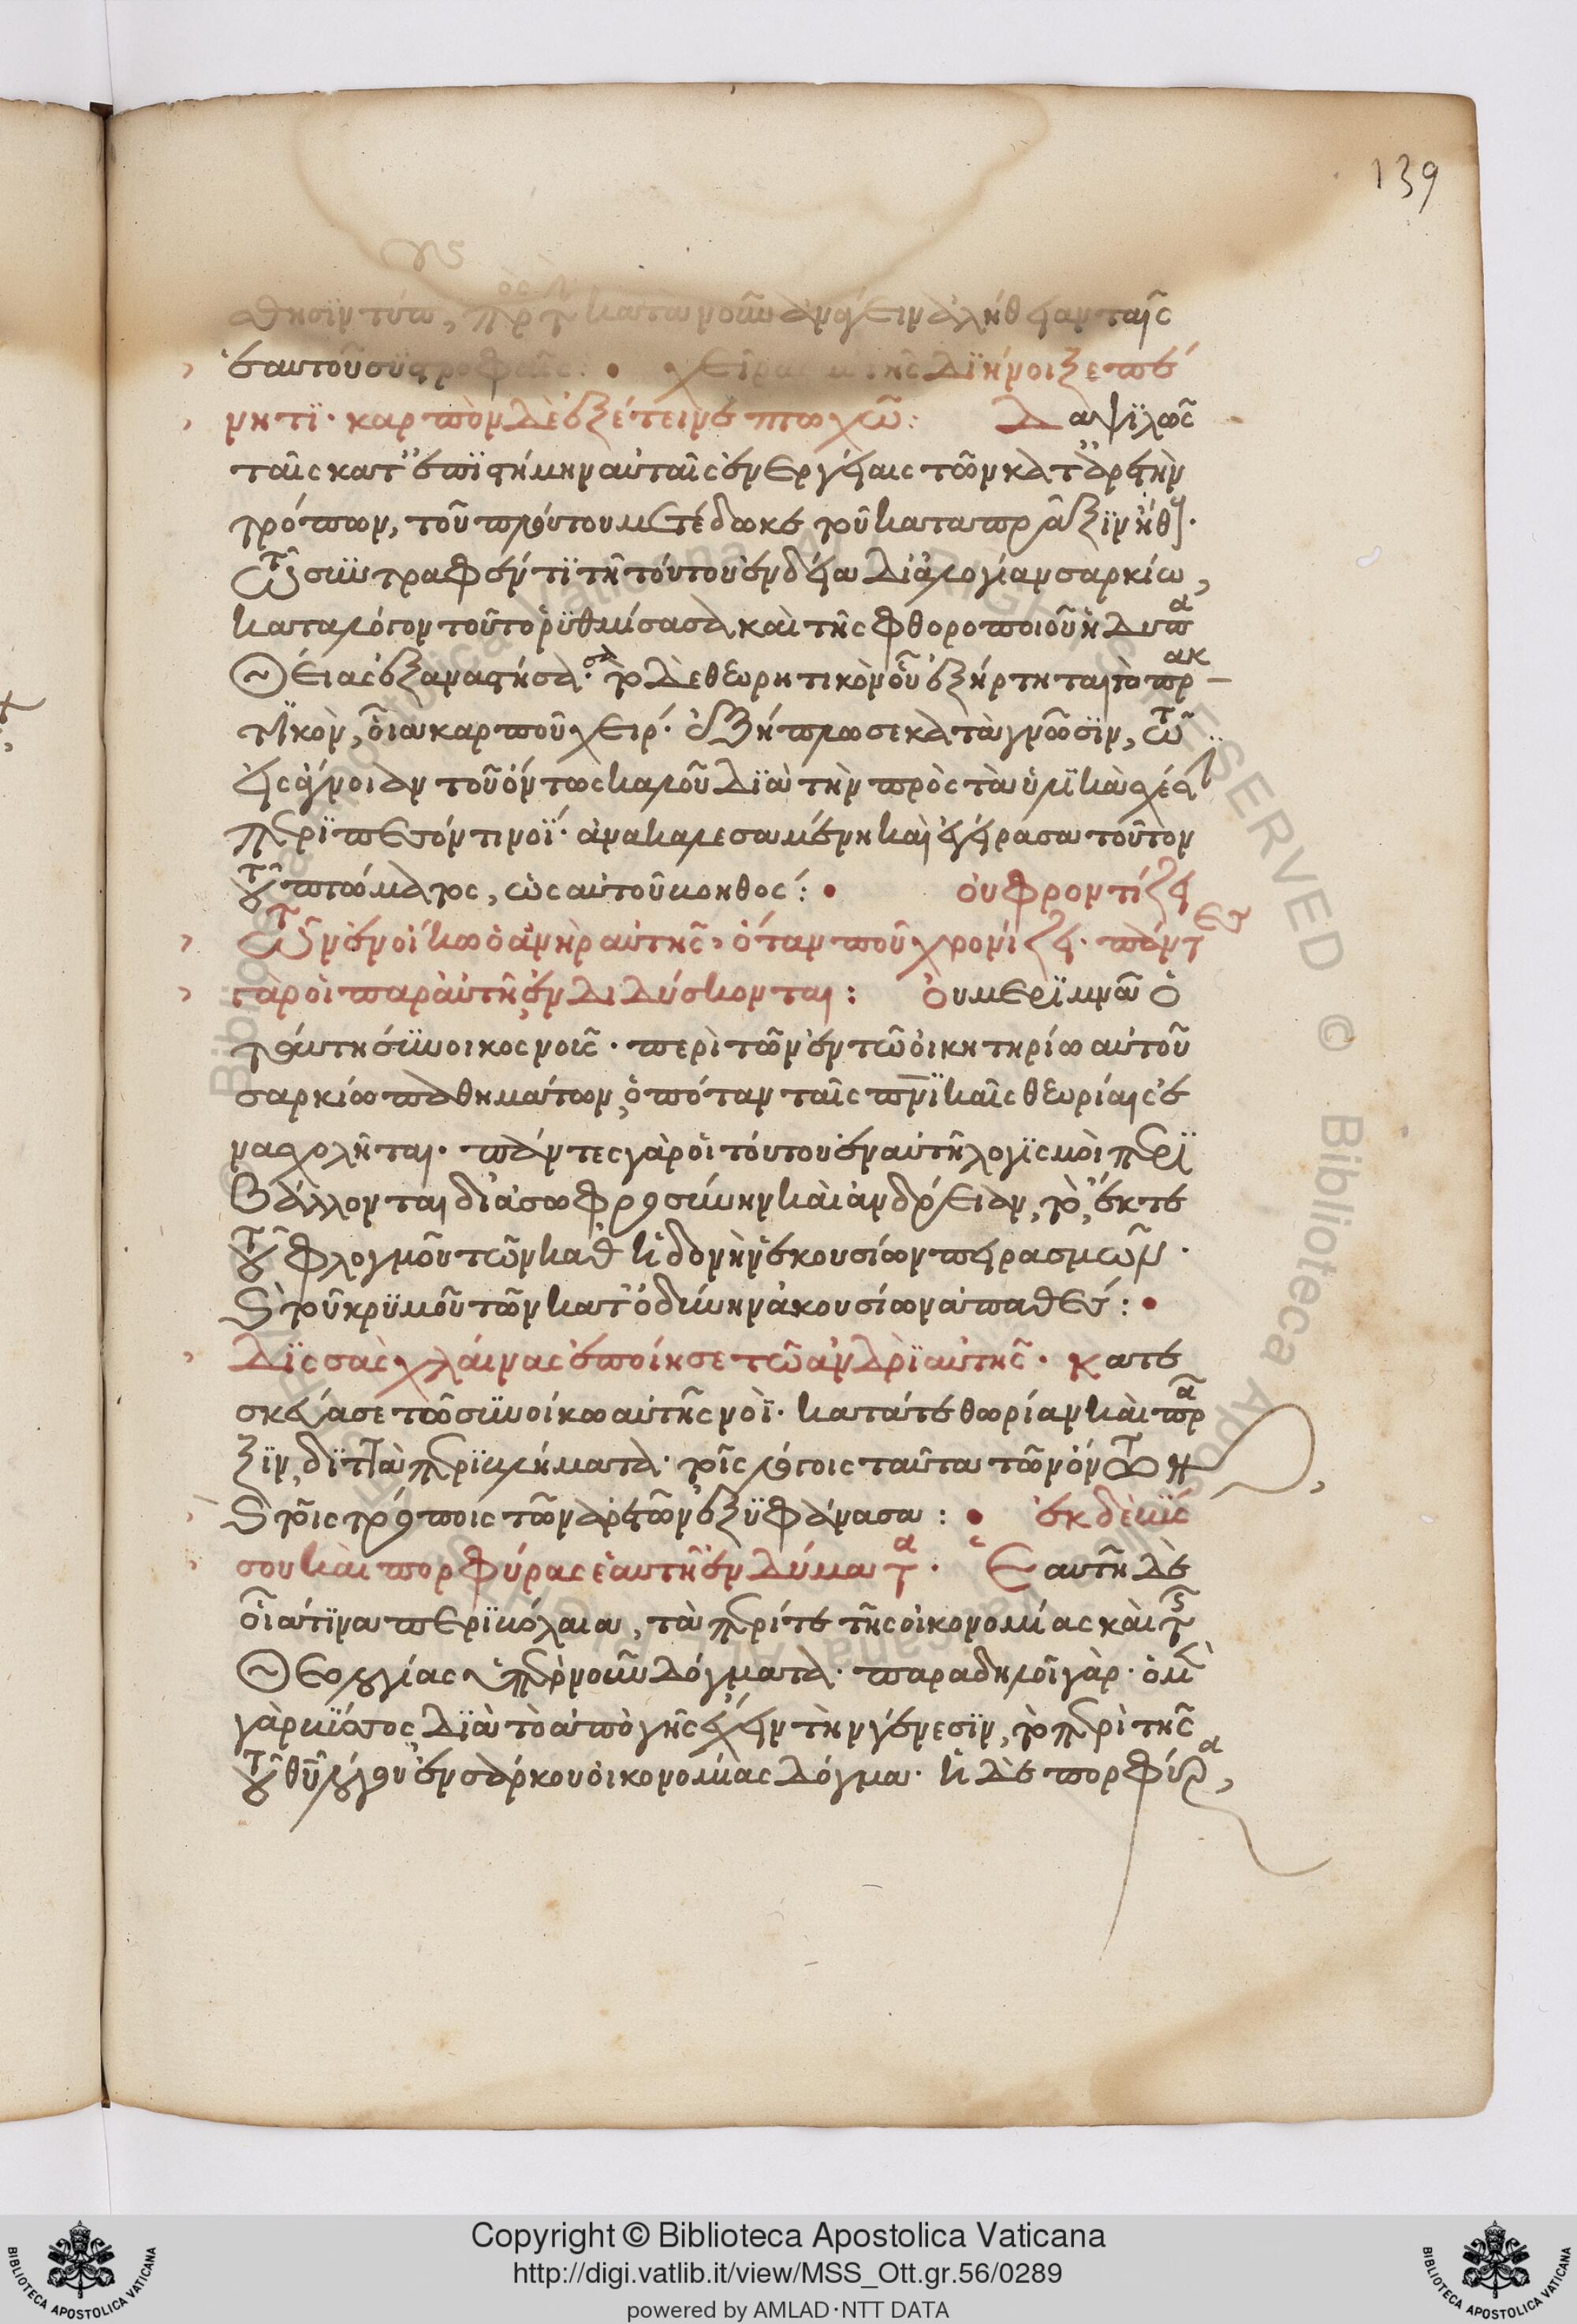 139
αἴσθησιν τύπω, πρὸς τὴν κατὰ νοῦν ἀνάγειν ἀλήθειαν ταῖς
ἑαυτοῦ συστροφαῖς: • χεῖρας αὐτῆς διήνοιξε πέ
νητι· καρπὸν δὲ ἐξέτεινε πτωχῶ: Δαψιλῶς
ταῖς κατ' ἐπιστήμην αὐταῖς ἐνεργείαις τῶν κατ' ἀρετὴν
τρόπων, τοῦ πλούτου μετέδωκε τοῦ κατὰ πρᾶξιν ἤθους·
τῶ συντραφέντι τῆ τούτου ἐνδεία δι' ἀλογίαν σαρκίω,
κατὰ λόγον τοῦτο ῥυθμίσασα καὶ τῆς φθοροποιοῦ ἡδυπα
θείας ἐξαναστήσασα· τὸ δὲ θεωρητικὸν οὗ ἐξήρτηται τὸ πρακ
τικὸν, οἷα καρποῦ χείρ· ἐξήπλωσε κατὰ γνῶσιν, τῶ
εἰς ἄγνοιαν τοῦ ὄντως καλοῦ διὰ τὴν πρὸς τὰ ὑλικὰ σχέσιν
περιπεσόντι νοΐ· ἀνακαλεσαμένη καὶ ἐγείρασα τοῦτον
τοῦ πτώματος, ὡς αὐτοῦ βοηθός: • οὐ φροντίζει
τῶν ἐν οἴκω ὁ ἀνὴρ αὐτῆς, ὅταν που χρονίζει· πάντες
γὰρ οἱ παρ' αὐτῆ ἐνδιδύσκονται: Οὐ μεριμνᾶ ὁ
ταύτη σύνοικος νοῦς· περὶ τῶν ἐν τῶ οἰκητηρίω αὐτοῦ
σαρκίω παθημάτων, ὁπόταν ταῖς πνικαῖς θεωρίαις ἐ
νασχολῆται· πάντες γὰρ οἱ τούτου ἐν αὐτῆ λογισμοὶ περι
βάλλονται διὰ σωφροσύνην καὶ ἀνδρείαν, τὸ, ἔκ τε
τοῦ φλογμοῦ τῶν καθ' ἡδονὴν ἑκουσίων πειρασμῶν·
καὶ τοῦ κρυμοῦ τῶν κατ' ὀδύνην ἀκουσίων ἀπαθές: •
Δισσὰς χλαίνας ἐποίησε τῶ ἀνδρὶ αὐτῆς· Κατε
σκεύασε τῶ συνοίκω αὐτῆς νοῒ· κατά τε θεωρίαν καὶ πρᾶ
ξιν, διττὰ περιβλήματα· τοῖς λόγοις ταῦτα τῶν ὄντων
καὶ τοῖς τρόποις τῶν ἀρετῶν ἐξυφάνασα: • ἐκ δὲ βύς
σου καὶ πορφύρας ἑαυτῆ ἐνδύματα· Ἑαυτῆ δὲ
οἷά τινα περιβόλαια, τὰ περί τε τῆς οἰκονομίας καὶ τῆς
θεολογίας περὶ νοῦν δόγματα· παραδηλοῖ γὰρ· ὁ μὲν
γὰρ βύσσος, διὰ τὸ ἀπὸ γῆς ἔχειν τὴν γένεσιν, τὸ περὶ τῆς
τοῦ θυ λόγου ἐνσάρκου οἰκονομίας δόγμα· ἡ δὲ πορφύρα,